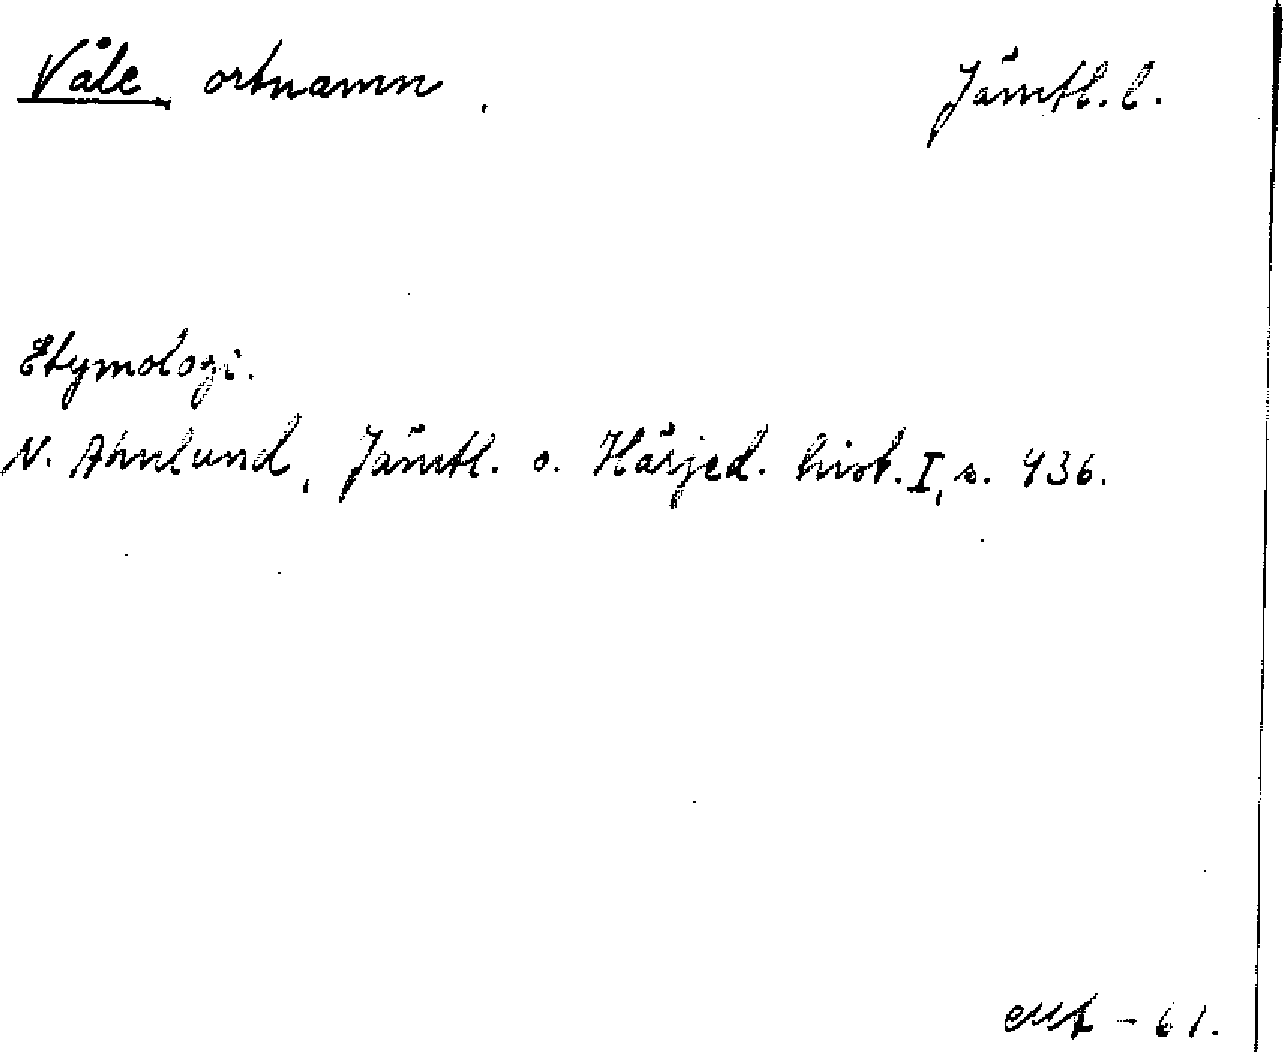 Våle ortnamn. Jämtl. l.
Etymologi.
N. Ahnlund, Jämtl. o. Härjed. hist. I, s. 436.
- 61.